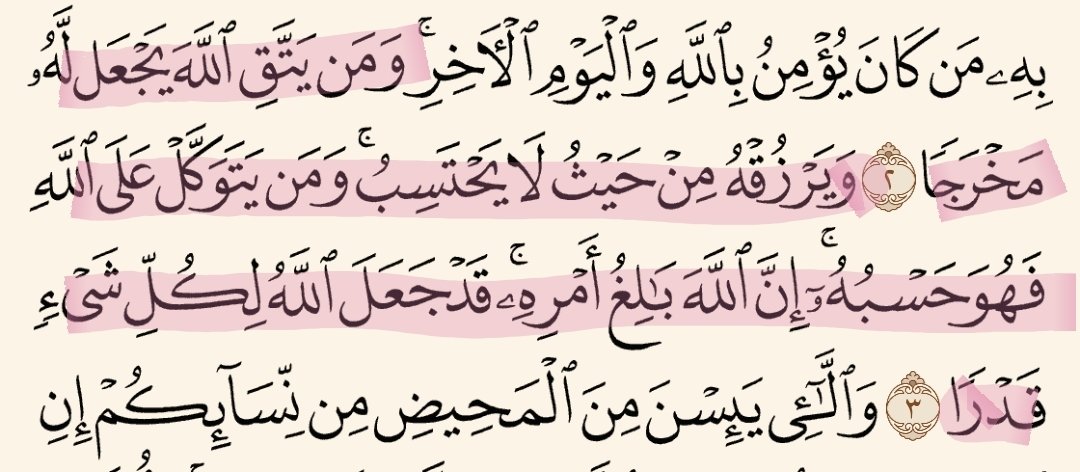 بِهِۦ مَن كَانَ يُؤْمِنُ بِٱللَّهِ وَٱلْيَوْمِ ٱلْأَخِرِ ۚ وَمَن يَتَّقِ ٱللَّهَ يَجْعَل لَّهُۥ
مَخْرَجًا ٢ وَيَرْزُقْهُ مِنْ حَيْثُ لَا يَحْتَسِبُ ۚ وَمَن يَتَوَكَّلْ عَلَى ٱللَّهِ
فَهُوَ حَسْبُهُۥٓ ۚ إِنَّ ٱللَّهَ بَٰلِغُ أَمْرِهِۦ ۚ قَدْ جَعَلَ ٱللَّهُ لِكُلِّ شَىْءٍ
قَدْرًا ٣ وَٱلَّٰٓـِٔى يَئِسْنَ مِنَ ٱلْمَحِيضِ مِن نِّسَآئِكُمْ إِنِ